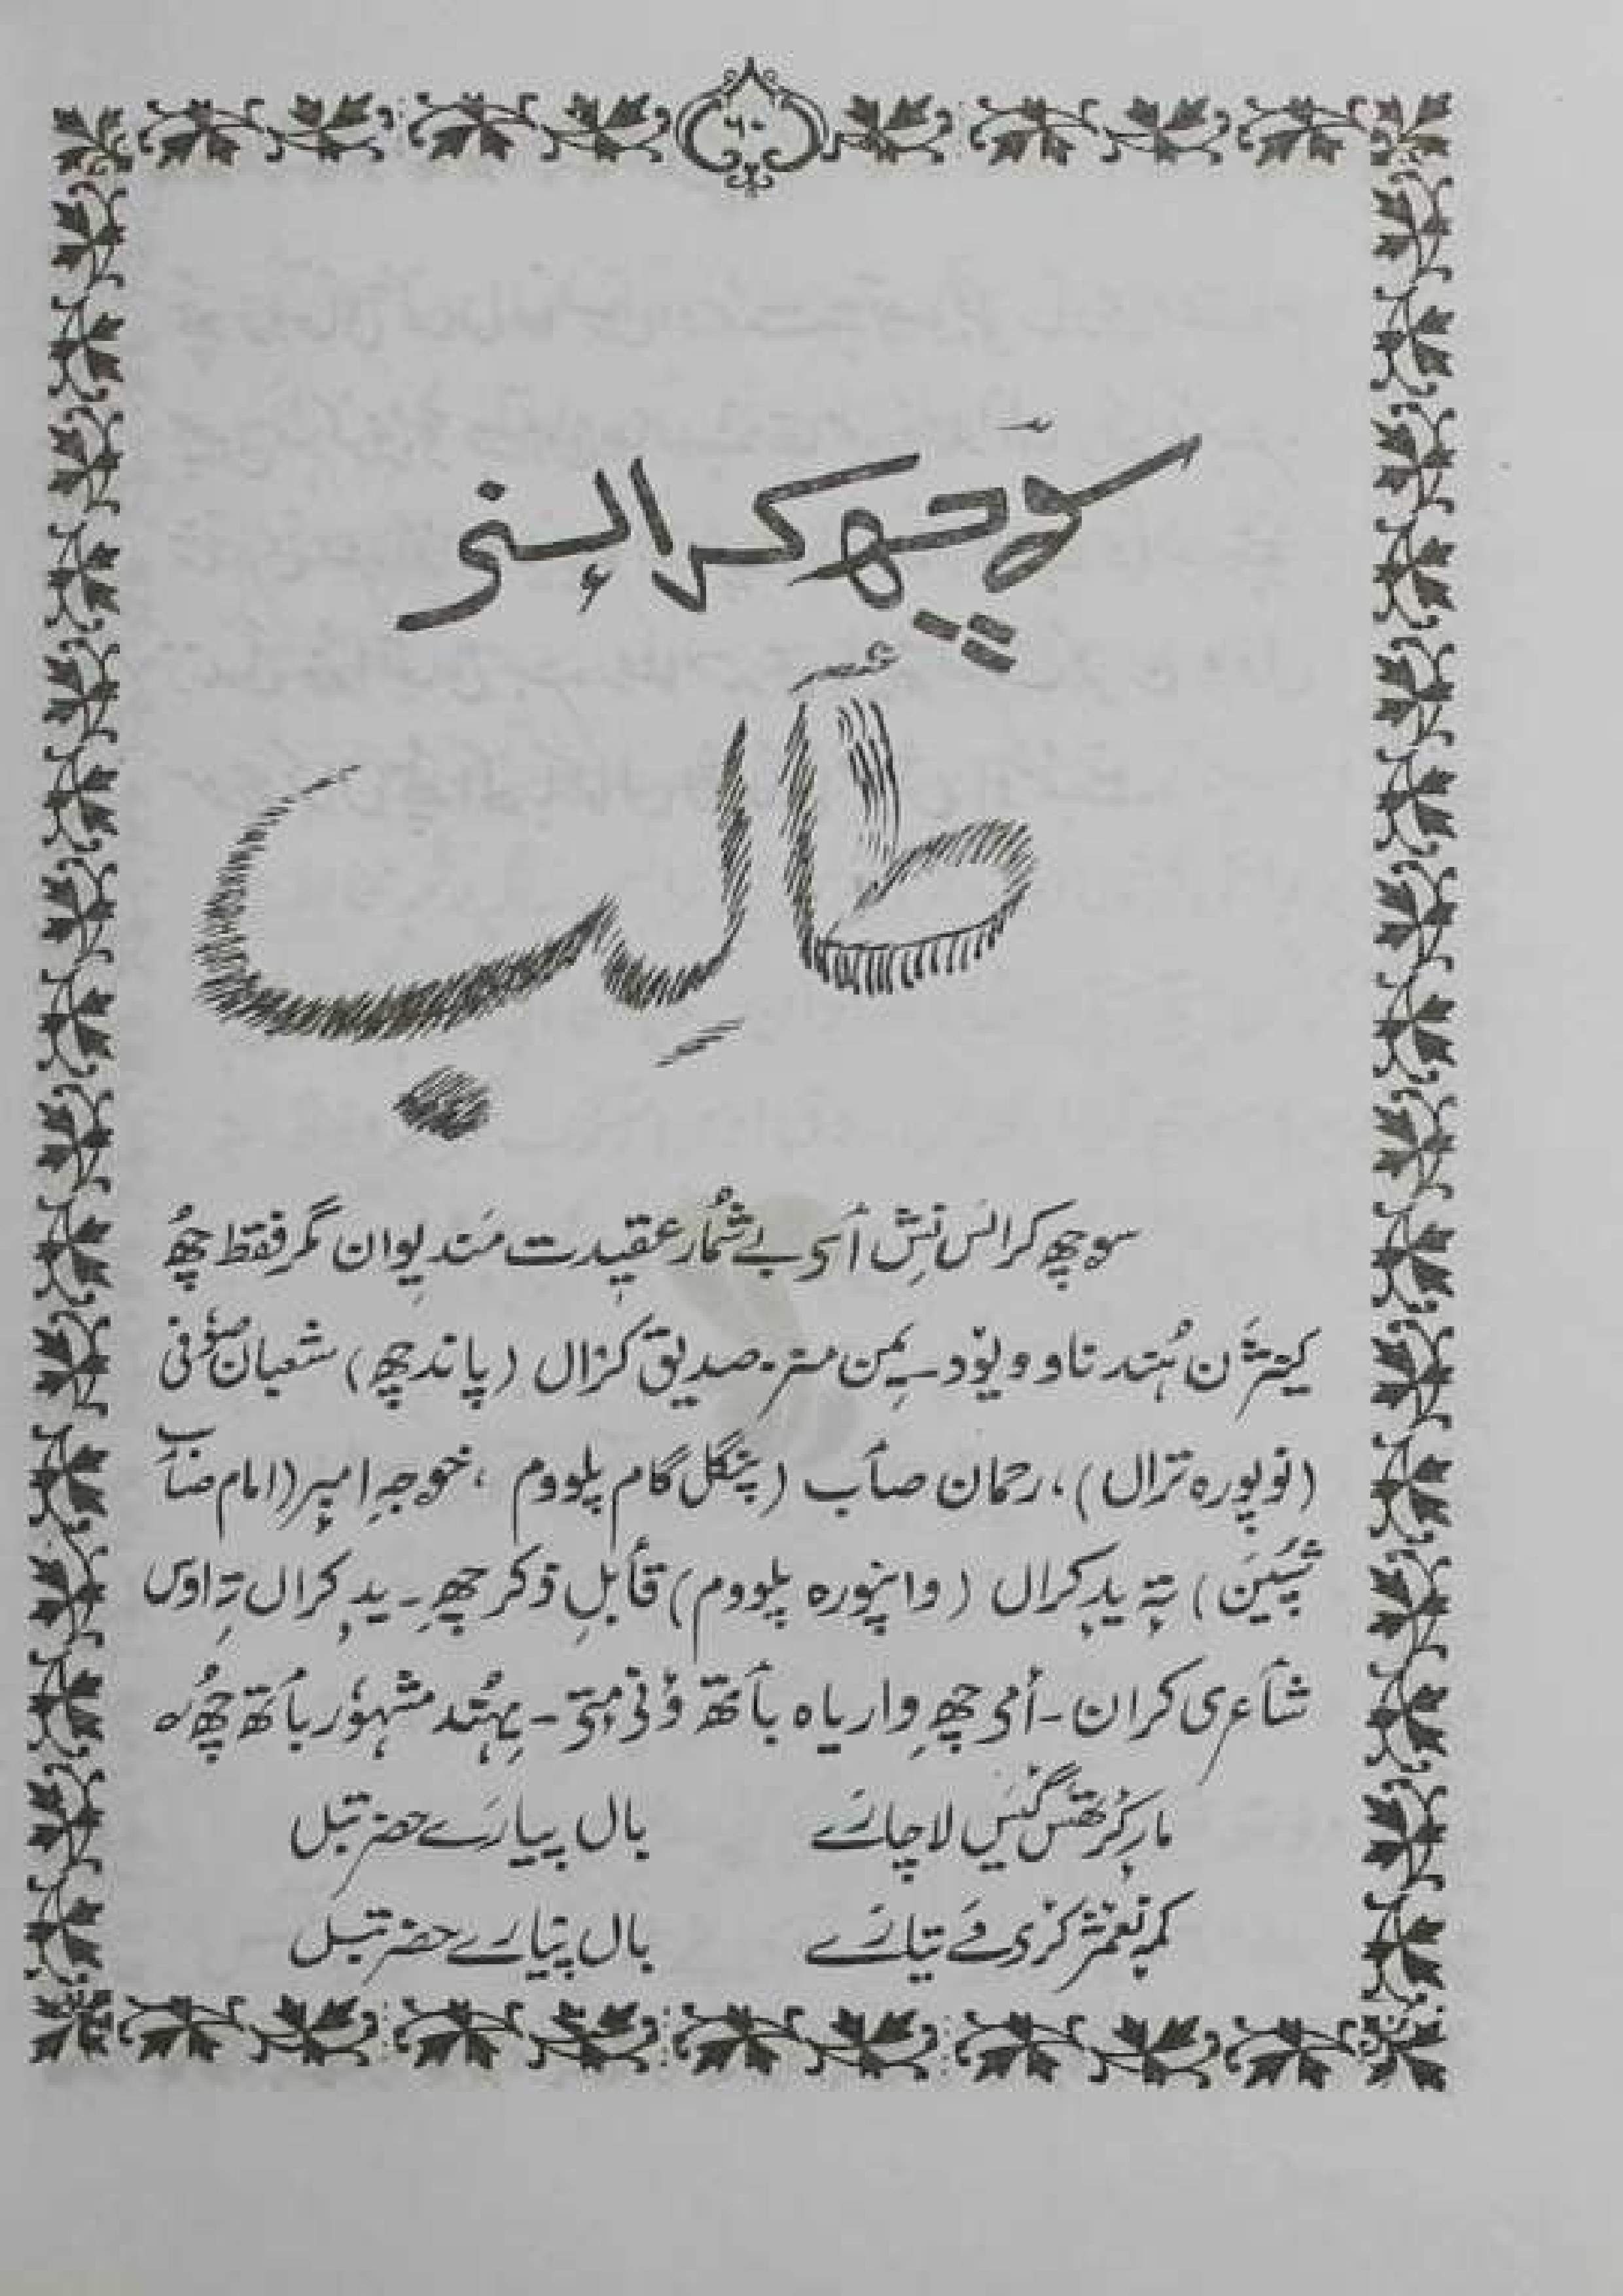 ۶۰
سۄچھ کرالٕنۍ
طٲلِب
سوچھ کرالس نِش أسۍ بے شُمار عقیدت مَند یِوان مگر فقط چھُ
کینٛژن ہُنٛد ناو ویوٚد۔ یِمن منز۔ صدیق کرٛال (پاندچھ) شعبان صوٗفی
(نوپورہ ترال)، رحمان صٲب (پنگل گام پلووم ، خوجہِ امیر (امام صٲب
شُپین) تہٕ یدٕ کرال (وانپورہ پلووم) قٲبلِ ذکر چھِ۔ یدٕ کرال تِہ اوس
شٲعری کران۔ أمۍ چھِ واریاہ بٲتھ وٕنۍ مِتۍ۔ یِہُنٛد مشہوٗر بٲتھ چھُہ
مارٕ کٔرتھس گٔیس لاچارَے بال پیارَے حضرتبل
کمہٕ نعمٕژ کرٛی مے تیارَے بال پیارَے حضرتبل